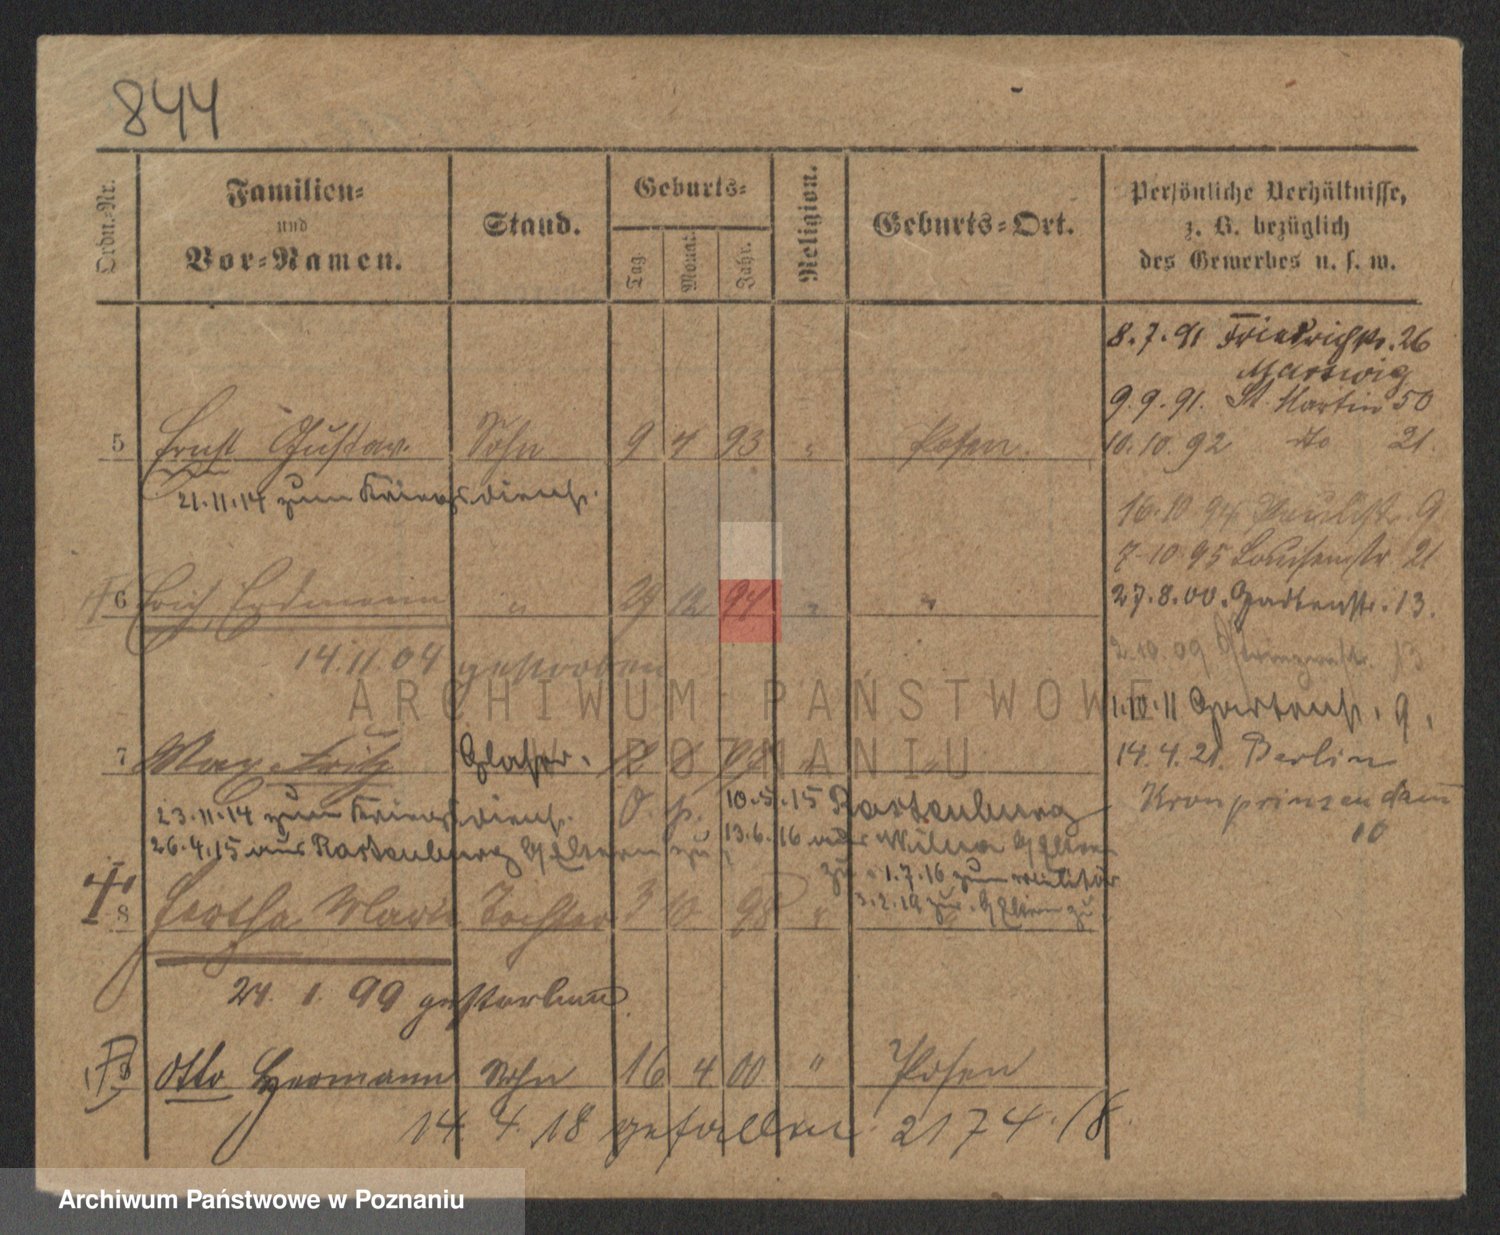 844
Ordn.-Nr.
Familien-
und
Vor-Namen.
Stand.
Geburts-
Tag.
Monat.
Jahr.
Religion.
Geburts-Ort.
Persönliche Verhältnisse,
z. B. bezüglich
des Gewerbes u. s. w.
8.7.91 Friedrichstr. 26
9.9.91. St. Martin 50
10.10.92 dto 21.
5 Ernst Gustav. Sohn 9 4 93 " Posen.
21.11.14 zum Kriegsdienst.
16.10 94 Paulistr. 9
7.10 95 Louisenstr. 21
6 Erich Erdmann " 29 12 94 " "
27.8.00. Gartenstr. 13.
14.11.04 gestorben
2.10.09 13
1.10.11 Gartenstr. 9.
7 Max Fritz Glaser.
14.4.21. Berlin
Kronprinzendamm
10
23.11.14 zum Kriegsdienst. 10.5.15 Rastenburg
26.4.15 aus Rastenburg Eltern zu 13.6.16
zu 1.7.16 zum Militär
8 Hertha Marie Tochter 3 10 98 "
zur Eltern zu
24. 1. 99 gestorben.
Otto Hermann Sohn 16 4 00 " Posen
14. 4. 18 gefallen 2174./18.
ARCHIWUM PAŃSTWOWE
W POZNANIU
Archiwum Państwowe w Poznaniu